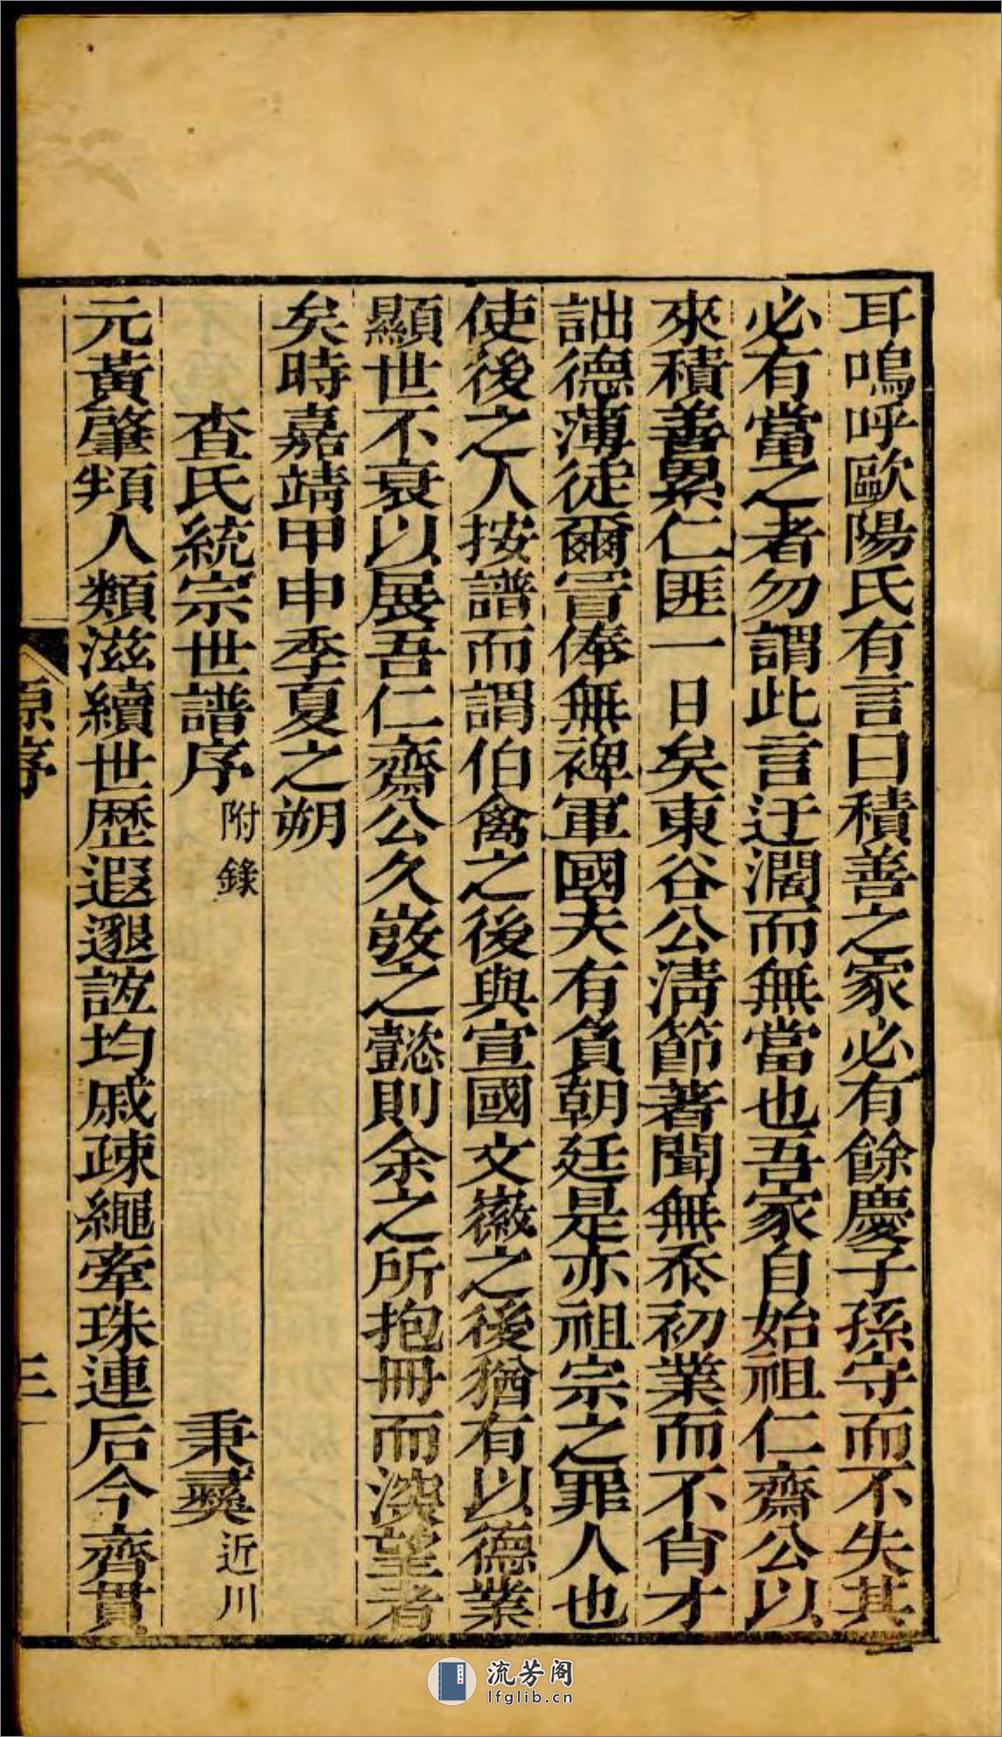 耳嗚呼歐陽氏有言曰積善之家必有餘慶子孫守而不失其
必有當之者勿謂此言迂濶而無當也吾家自始祖仁齋公以
來積善累仁匪一日矣東谷公清節著聞無忝初業而不肖才
詘德薄徒爾冒俸無裨軍國夫有負朝廷是亦祖宗之罪人也
使後之人按譜而謂伯禽之後與宣國文徽之後猶有以德業
顯世不衰以展吾仁齋公久敚之懿則余之所抱冊而深望者
矣時嘉靖甲申季夏之朔
查氏統宗世譜序附錄 秉彞近川
元黃肇類人類滋續世歷遐邈誼均戚疎繩牽珠連后今齊貫
原序
三
流芳阁
lfglib.cn